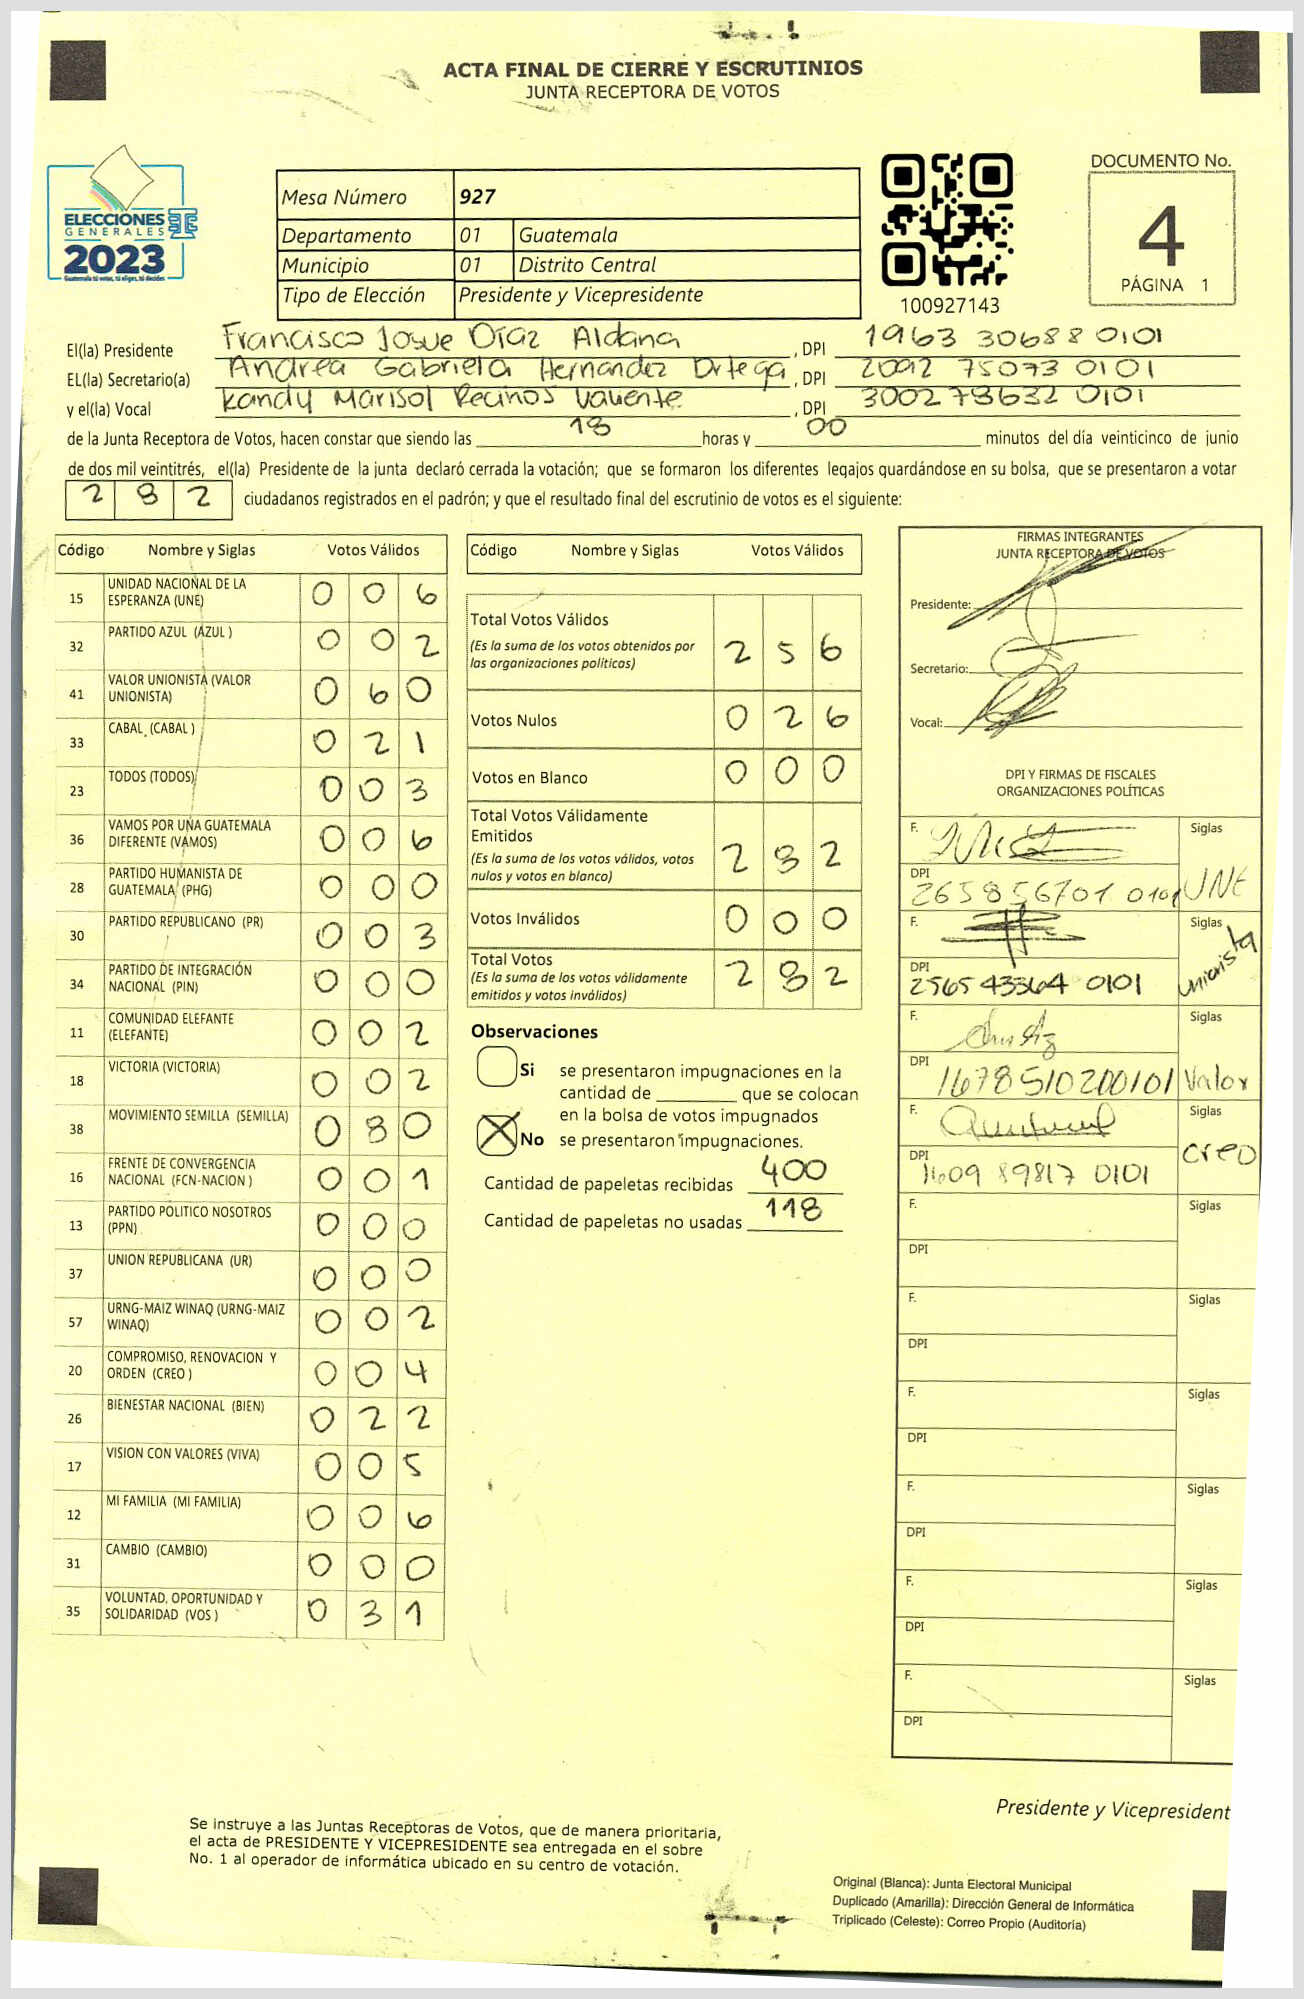 ACTA FINAL DE CIERRE Y ESCRUTINIOS
JUNTA RECEPTORA DE VOTOS
ELECCIONES
GENERALES
2023
Guatemala tú votas, tú eliges, tú decides
Mesa Número 927
Departamento 01 Guatemala
Municipio 01 Distrito Central
Tipo de Elección Presidente y Vicepresidente
100927143
DOCUMENTO No.
4
PÁGINA 1
El(la) Presidente Francisco Josue Díaz Aldana, DPI 1963 30688 0101
EL(la) Secretario(a) Andrea Gabriela Hernandez Ortega, DPI 2092 75073 0101
y el(la) Vocal Kandy Marisol Recinos Valiente, DPI 3002 78632 0101
de la Junta Receptora de Votos, hacen constar que siendo las 18 horas y 00 minutos del día veinticinco de junio
de dos mil veintitrés, el(la) Presidente de la junta declaró cerrada la votación; que se formaron los diferentes legajos guardándose en su bolsa, que se presentaron a votar
282 ciudadanos registrados en el padrón; y que el resultado final del escrutinio de votos es el siguiente:
Código Nombre y Siglas Votos Válidos
15 UNIDAD NACIONAL DE LA ESPERANZA (UNE) 006
32 PARTIDO AZUL (AZUL ) 002
41 VALOR UNIONISTA (VALOR UNIONISTA) 060
33 CABAL (CABAL ) 021
23 TODOS (TODOS) 003
36 VAMOS POR UNA GUATEMALA DIFERENTE (VAMOS) 006
28 PARTIDO HUMANISTA DE GUATEMALA (PHG) 000
30 PARTIDO REPUBLICANO (PR) 003
34 PARTIDO DE INTEGRACIÓN NACIONAL (PIN) 000
11 COMUNIDAD ELEFANTE (ELEFANTE) 002
18 VICTORIA (VICTORIA) 002
38 MOVIMIENTO SEMILLA (SEMILLA) 080
16 FRENTE DE CONVERGENCIA NACIONAL (FCN-NACION ) 001
13 PARTIDO POLITICO NOSOTROS (PPN) 000
37 UNION REPUBLICANA (UR) 000
57 URNG-MAIZ WINAQ (URNG-MAIZ WINAQ) 002
20 COMPROMISO, RENOVACION Y ORDEN (CREO ) 004
26 BIENESTAR NACIONAL (BIEN) 022
17 VISION CON VALORES (VIVA) 005
12 MI FAMILIA (MI FAMILIA) 006
31 CAMBIO (CAMBIO) 000
35 VOLUNTAD, OPORTUNIDAD Y SOLIDARIDAD (VOS ) 031
Código Nombre y Siglas Votos Válidos
Total Votos Válidos 256
(Es la suma de los votos obtenidos por
las organizaciones políticas)
Votos Nulos 026
Votos en Blanco 000
Total Votos Válidamente
Emitidos 282
(Es la suma de los votos válidos, votos
nulos y votos en blanco)
Votos Inválidos 000
Total Votos 282
(Es la suma de los votos válidamente
emitidos y votos inválidos)
Observaciones
Si se presentaron impugnaciones en la
cantidad de ________ que se colocan
en la bolsa de votos impugnados
No se presentaron impugnaciones.
Cantidad de papeletas recibidas 400
Cantidad de papeletas no usadas 118
FIRMAS INTEGRANTES
JUNTA RECEPTORA DE VOTOS
Presidente:
Secretario:
Vocal:
DPI Y FIRMAS DE FISCALES
ORGANIZACIONES POLÍTICAS
F. Siglas
DPI 265856701 0101 UNE
F. Siglas
DPI 2565 43364 0101 unionista
F. Siglas
DPI 1678510200101 Valor
F. Siglas
DPI 1609 89817 0101 creo
F. Siglas
DPI
F. Siglas
DPI
F. Siglas
DPI
F. Siglas
DPI
F. Siglas
DPI
F. Siglas
DPI
Presidente y Vicepresident
Se instruye a las Juntas Receptoras de Votos, que de manera prioritaria,
el acta de PRESIDENTE Y VICEPRESIDENTE sea entregada en el sobre
No. 1 al operador de informática ubicado en su centro de votación.
Original (Blanca): Junta Electoral Municipal
Duplicado (Amarilla): Dirección General de Informática
Triplicado (Celeste): Correo Propio (Auditoría)